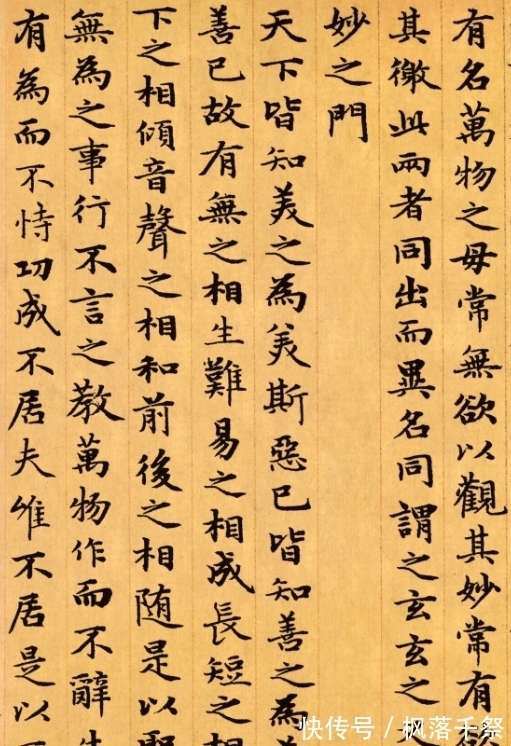 有名萬物之母常無欲以觀其妙常有
其徼此兩者同出而異名同謂之玄玄之
妙之門
天下皆知美之為美斯惡已皆知善之為
善已故有無之相生難易之相成長短之相
下之相傾音聲之相和前後之相随是以聖
無為之事行不言之教萬物作而不辭生
有為而不恃功成不居夫唯不居是以不
快传号/枫落千祭